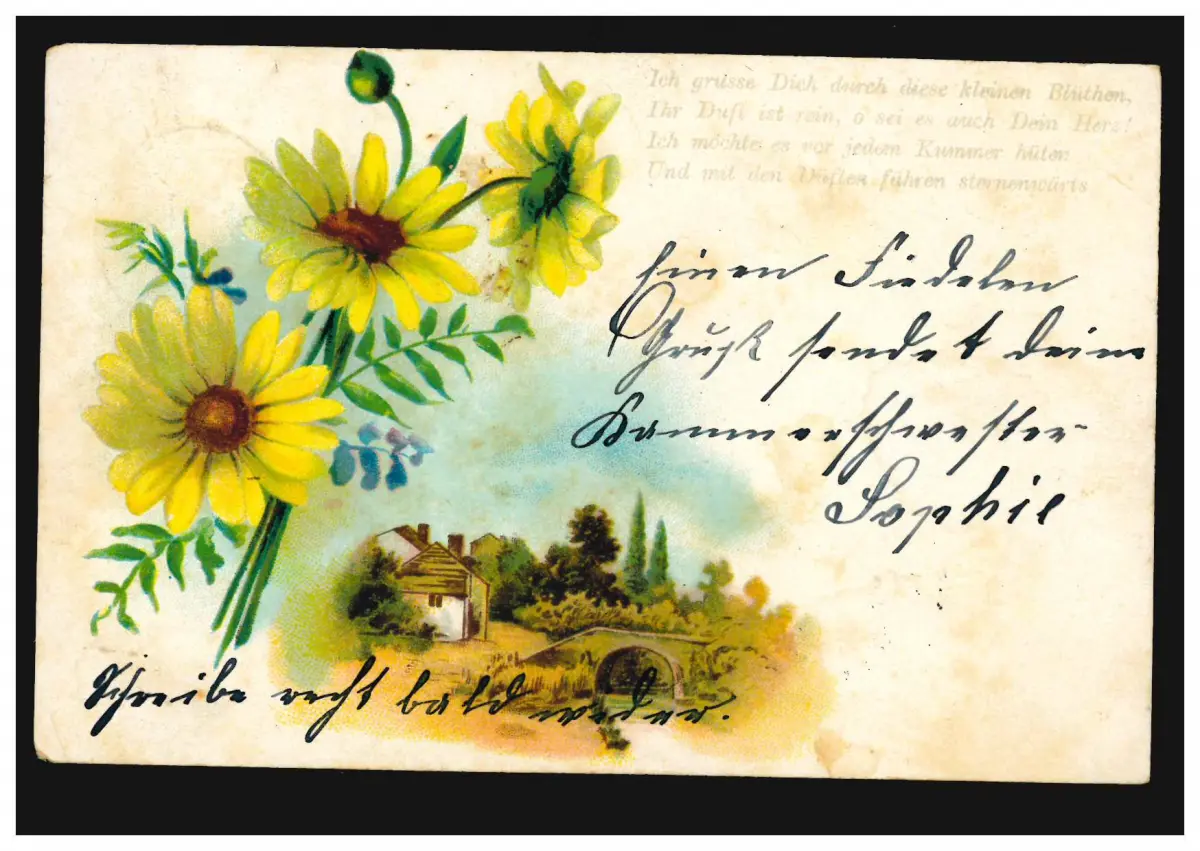 Ich grüsse Dich durch diese kleinen Blüthen,
Ihr Duft ist rein, o sei es auch Dein Herz!
Ich möchte es vor jedem Kummer hüten
Und mit den Düften führen sternenwärts
Einen Fiedelen
Gruß sendet deine
Kammerschwester
Sophie
Schreibe recht bald weder.